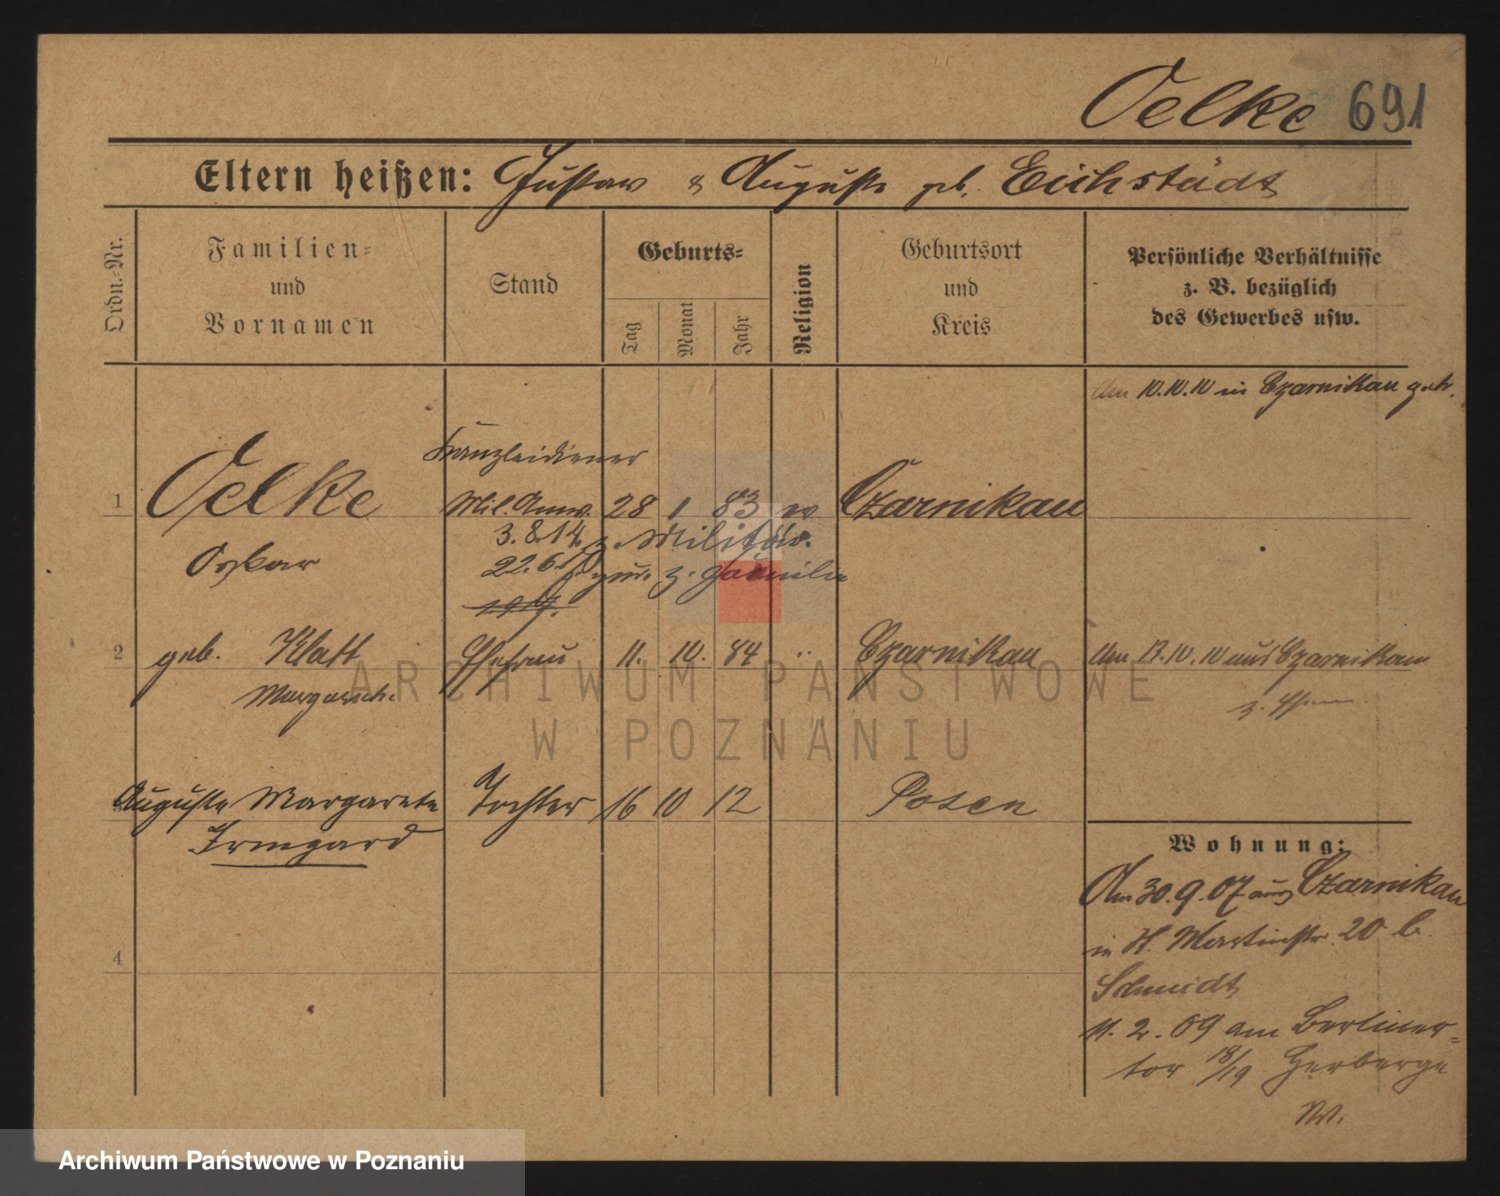 Oelke 691
Eltern heißen: Gustav & Auguste geb. Eichstädt
Ordn.-Nr.
Familien-
und
Vornamen
Stand
Geburts-
Tag
Monat
Jahr
Religion
Geburtsort
und
Kreis
Persönliche Verhältnisse
z. B. bezüglich
des Gewerbes usw.
Am 10.10.10 in Czarnikau geh.
Kanzleidiener
1 Oelke Mil. Anw. 28 1 83 ev Czarnikau
3.8.14. z. Militär.
Oskar 22.6. z. Familie
2 geb. Klatt Ehefrau 11. 10. 84 " Czarnikau Am 17.10.10 aus Czarnikau
Margareth. z. Ehem
Auguste Margarete Tochter 16 10 12 Posen
Irmgard
Wohnung:
Am 30.9.07 aus Czarnikau
in H. Martinstr. 20 b.
Schmidt
4
11.2.09 am Berliner-
tor 18/19 Herberge
ARCHIWUM PAŃSTWOWE
W POZNANIU
Archiwum Państwowe w Poznaniu